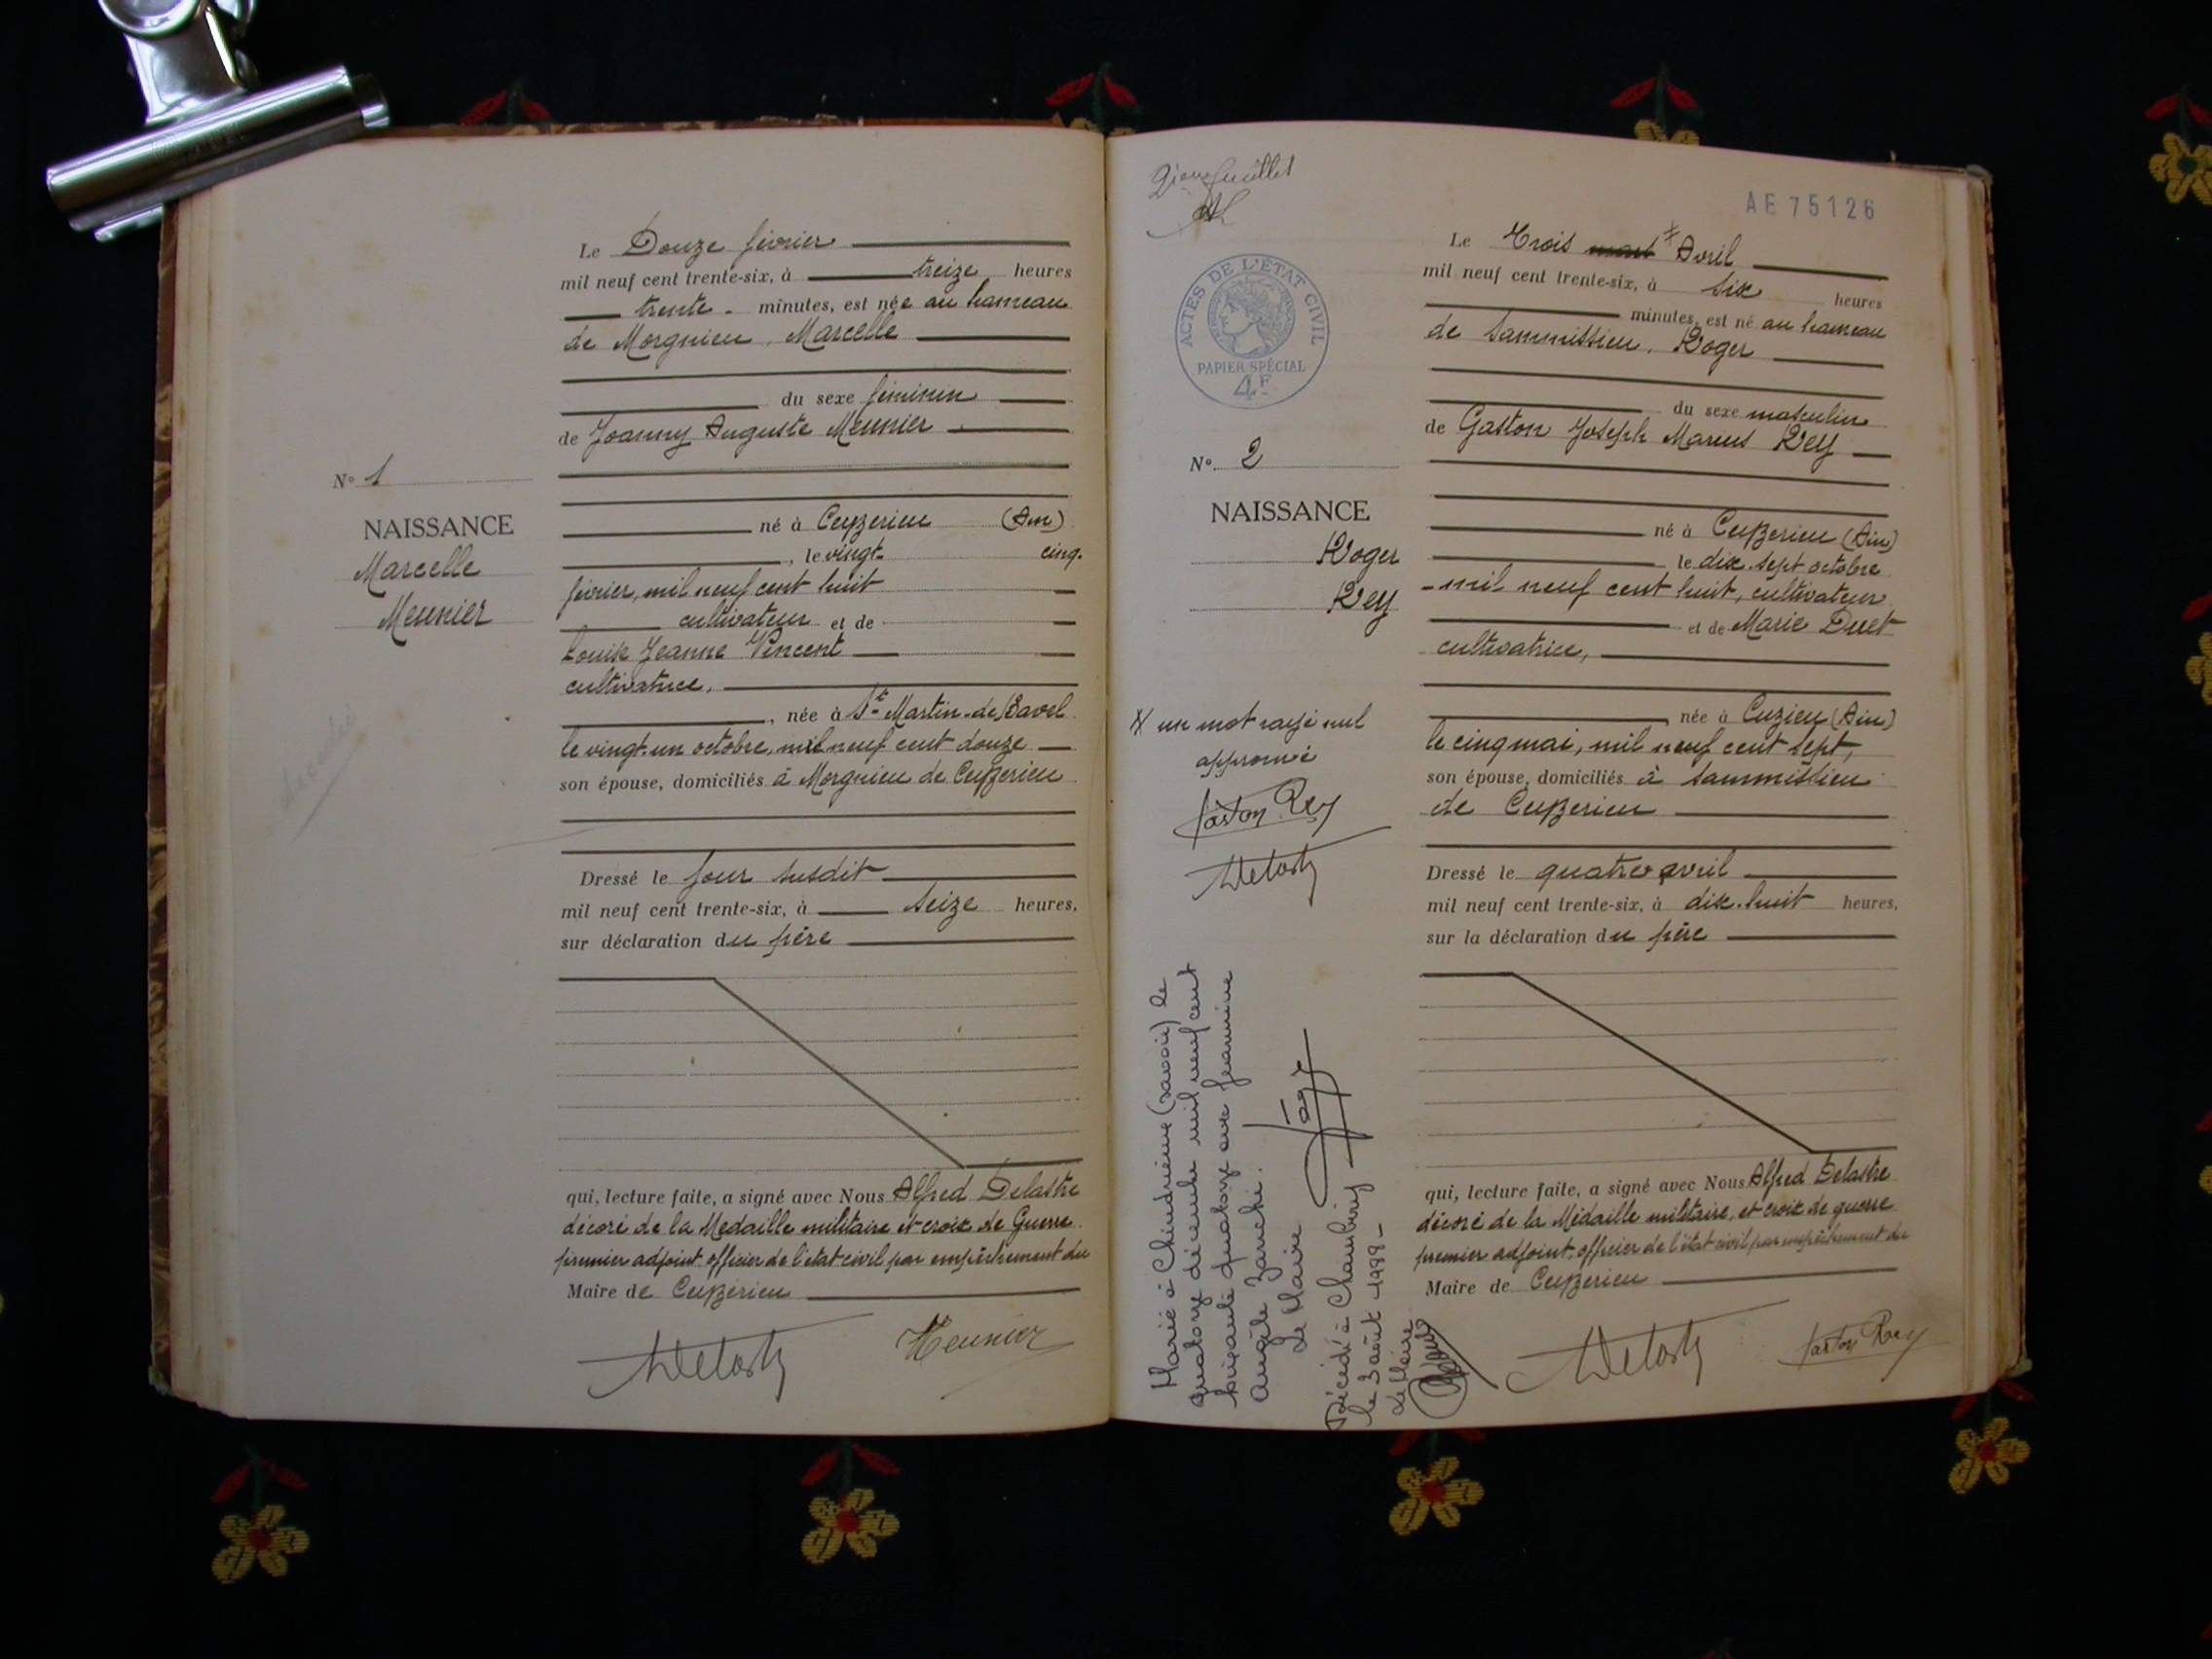 Le Douze février
mil neuf cent trente-six, à treize heures
trente minutes, est née au hameau
de Morgnieu, Marcelle
du sexe féminin
de Joanny Auguste Meunier
N° 1
NAISSANCE
Marcelle
Meunier
né à Ceyzerieu (Ain)
, le vingt cinq
février, mil neuf cent huit
cultivateur et de
Louise Jeanne Vincent
cultivatrice,
, née à St Martin-de-Bavel
le vingt un octobre, mil neuf cent douze
son épouse, domiciliés à Morgnieu de Ceyzerieu
Dressé le jour susdit
mil neuf cent trente-six, à seize heures,
sur déclaration du père
qui, lecture faite, a signé avec Nous Alfred Delastre
décoré de la Médaille militaire et croix de Guerre
premier adjoint officier de l'état civil par empêchement du
Maire de Ceyzerieu
Meunier
2ième feuillet
AE 75126
ACTES DE L'ÉTAT CIVIL
PAPIER SPÉCIAL
4F
Le Trois mars Avril
mil neuf cent trente-six, à six heures
minutes, est né au hameau
de Sammissieu, Roger
du sexe masculin
de Gaston Joseph Marius Rey
N° 2
NAISSANCE
Roger
Rey
né à Ceyzerieu (Ain)
le dix-sept octobre
mil neuf cent huit, cultivateur
et de Marie Duet
cultivatrice,
née à Cuzieu (Ain)
le cinq mai, mil neuf cent sept,
son épouse, domiciliés à Sammissieu
de Ceyzerieu
un mot rayé nul
approuvé
Gaston Rey
Dressé le quatre avril
mil neuf cent trente-six, à dix-huit heures,
sur la déclaration du père
qui, lecture faite, a signé avec Nous Alfred Delastre
décoré de la Médaille militaire, et croix de guerre
premier adjoint officier de l'état civil par empêchement du
Maire de Ceyzerieu
Gaston Rey
Marié à Chindrieux (Savoie) le
quatorze décembre mil neuf cent
soixante quatorze avec Jeannine
Angèle Zanchi.
Le Maire
Décédé à Chambéry
le 3 août 1988
Le Maire